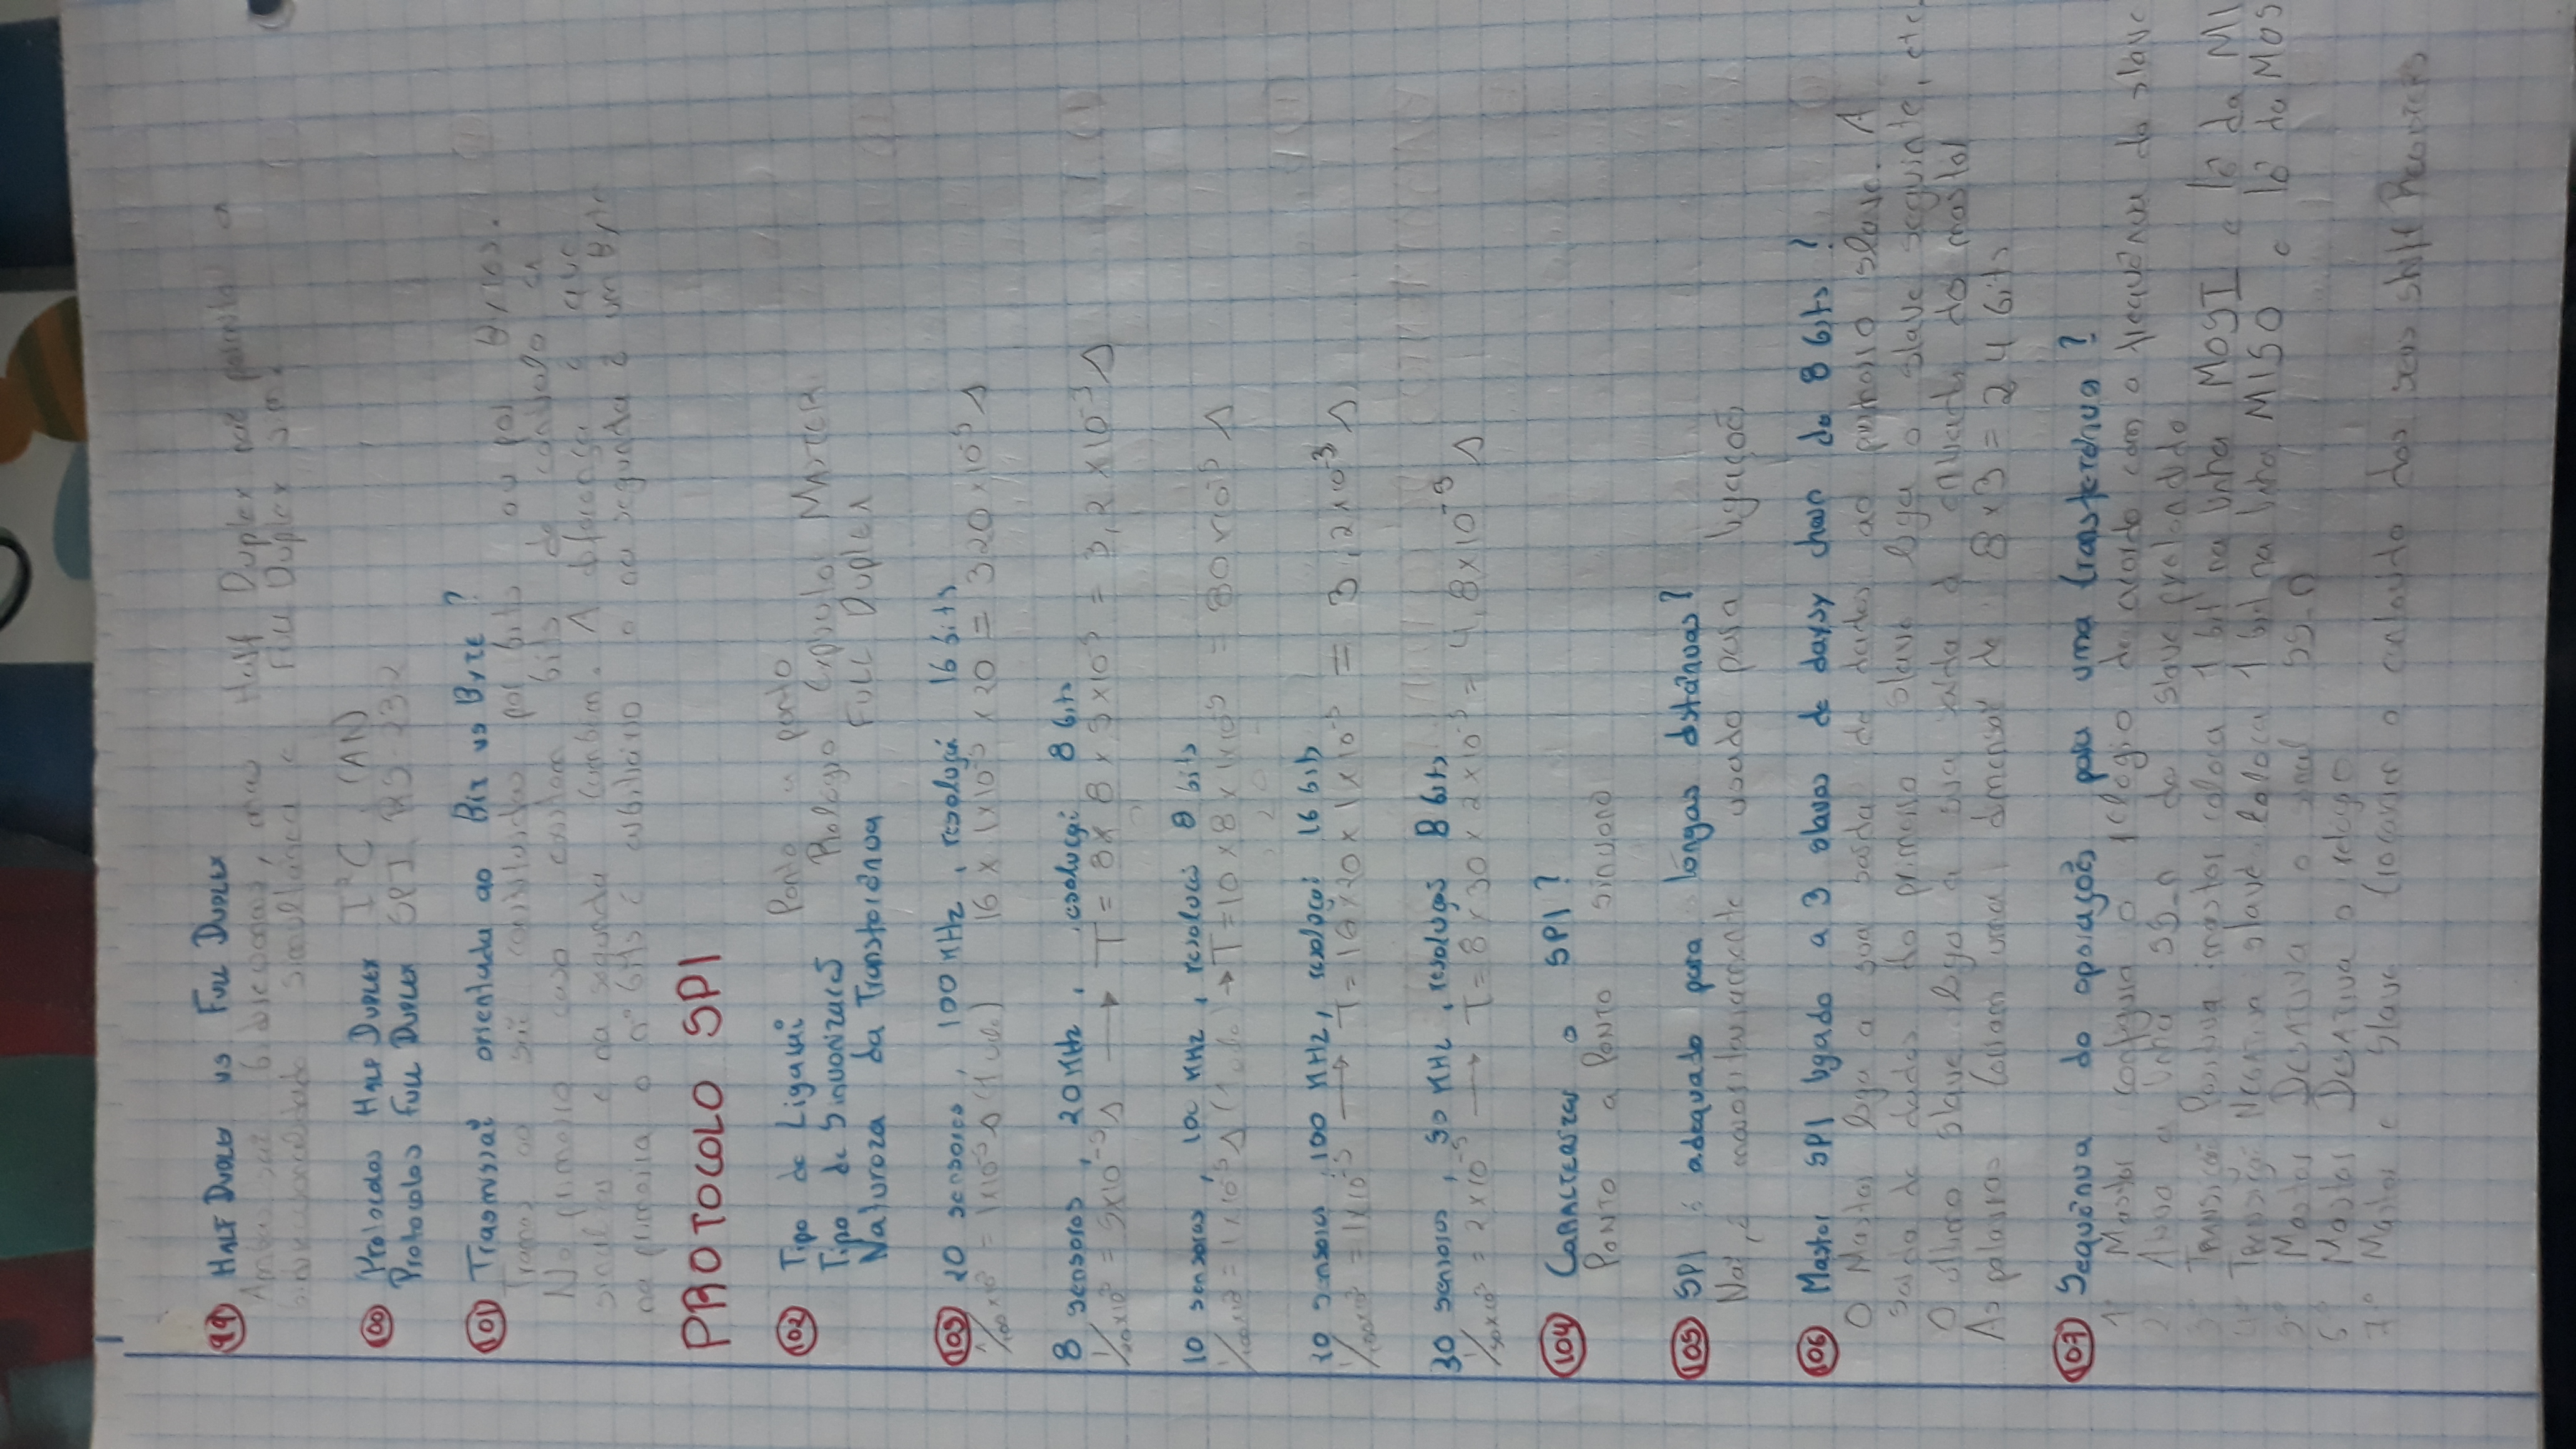 99 HALF DUPLEX vs FULL DUPLEX
Ambas são bidirecionais, mas Half Duplex não permite a
bidirecionalidade simultânea e Full Duplex sim.
100 Protocolos HALF DUPLEX I²C, CAN
Protocolos FULL DUPLEX SPI, RS-232
101 Trasmissaõ orientada ao BIT vs BYTE?
Tramas ou são constituídas por bits ou por Bytes.
No primeiro caso existem bits de controlo
e na segunda também. A diferença é que
na primeira o nº bits é o na segunda é um Byte
PROTOCOLO SPI
102 Tipo de Ligação Ponto a ponto
Tipo de Sincronização Relógio Explicito MASTER
Natureza da Transferência FULL DUPLEX
103 20 sensores, 100 KHz, resolução 16 bits
1/100×10³ = 1×10⁻⁵ s (1 ciclo) 16 × 1×10⁻⁵ × 20 = 320×10⁻⁵ s
8 sensores, 20 KHz, resolução 8 bits
1/20×10³ = 5×10⁻⁵ s → T = 8 × 8 × 5×10⁻⁵ = 3,2×10⁻³ s
10 sensores, 100 KHz, resolução 8 bits
1/100×10³ = 1×10⁻⁵ s (1 ciclo) → T = 10 × 8 × 1×10⁻⁵ = 80×10⁻⁵ s
20 sensores, 100 KHz, resolução 16 bits
1/100×10³ = 1×10⁻⁵ → T = 16×20×1×10⁻⁵ = 3,2×10⁻³ s
30 sensores, 50 KHz, resolução 8 bits
1/50×10³ = 2×10⁻⁵ → T = 8×30×2×10⁻⁵ = 4,8×10⁻³ s
104 CARACTERIZAR o SPI?
PONTO a PONTO síncrono
105 SPI é adequado para longas distâncias?
Não, é maioritariamente usado para ligações
106 Master SPI ligado a 3 slaves de daysy chain de 8 bits?
O Master liga a sua saída de dados ao primeiro slave. A
saída de dados do primeiro slave liga o slave seguinte, etc.
O último slave liga a sua saída à entrada do master
As palavras teriam uma dimensão de 8×3 = 24 bits
107 Sequência de operações para uma transferência?
1º Master configura o relógio de acordo com a frequência do slave
2º Ativa a linha SS_n do slave pretendido
3º TRANSIÇÃO Positiva master coloca 1 bit na linha MOSI e lê da MI
4º TRANSIÇÃO NEGATIVA slave coloca 1 bit na linha MISO e lê da MOS
5º Master DESATIVA o sinal SS_n
6º Master DESATIVA o relógio
7º Master e Slave trocaram o conteúdo dos seus shift Registers